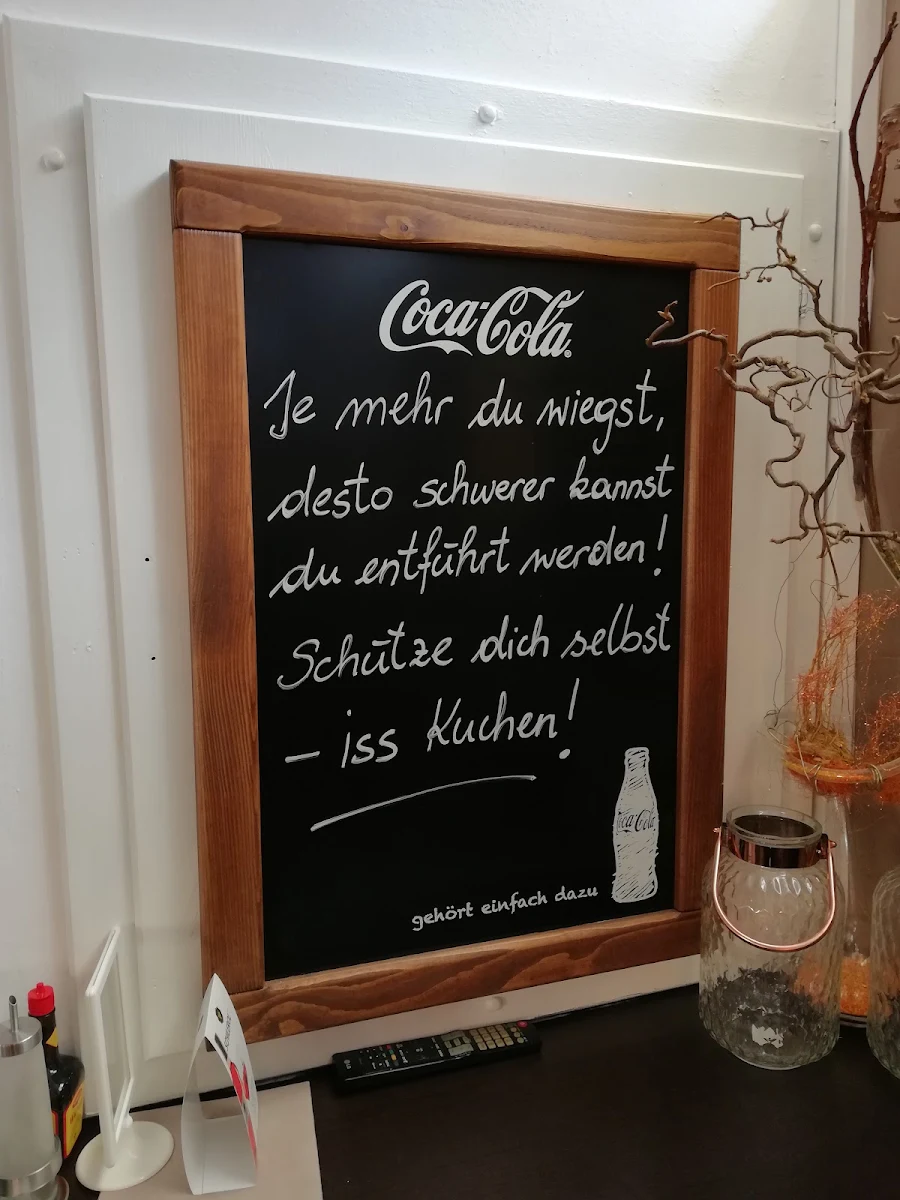 Coca-Cola
Je mehr du wiegst,
desto schwerer kannst
du entführt werden!
Schütze dich selbst
– iss Kuchen!
Coca-Cola
gehört einfach dazu